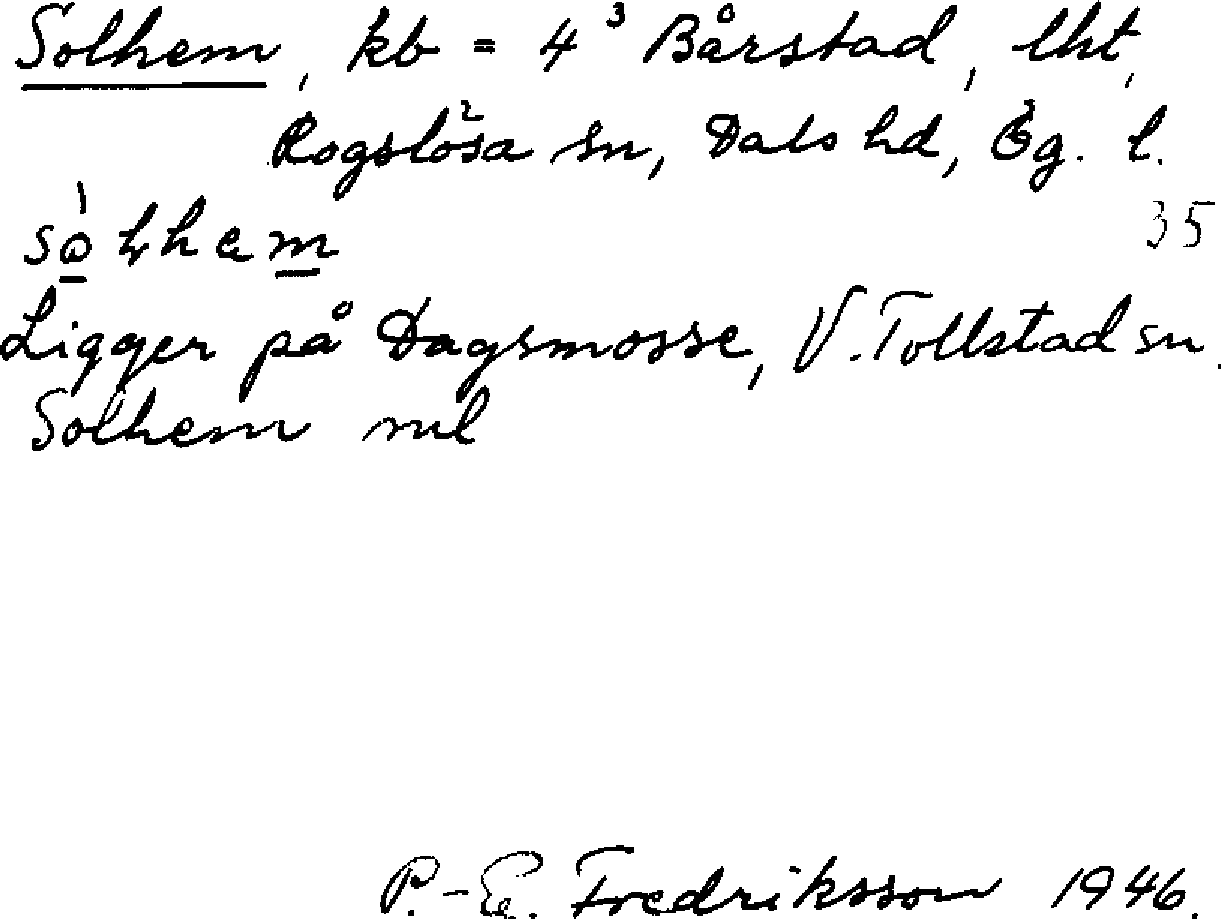 Solhem, kb = 4³ Bårstad, lht,
Rogslösa sn, Dals hd, Ög. l.
35
Ligger på Dagsmosse, V. Tollstad sn.
Solhem ml
P.-E. Fredriksson 1946.